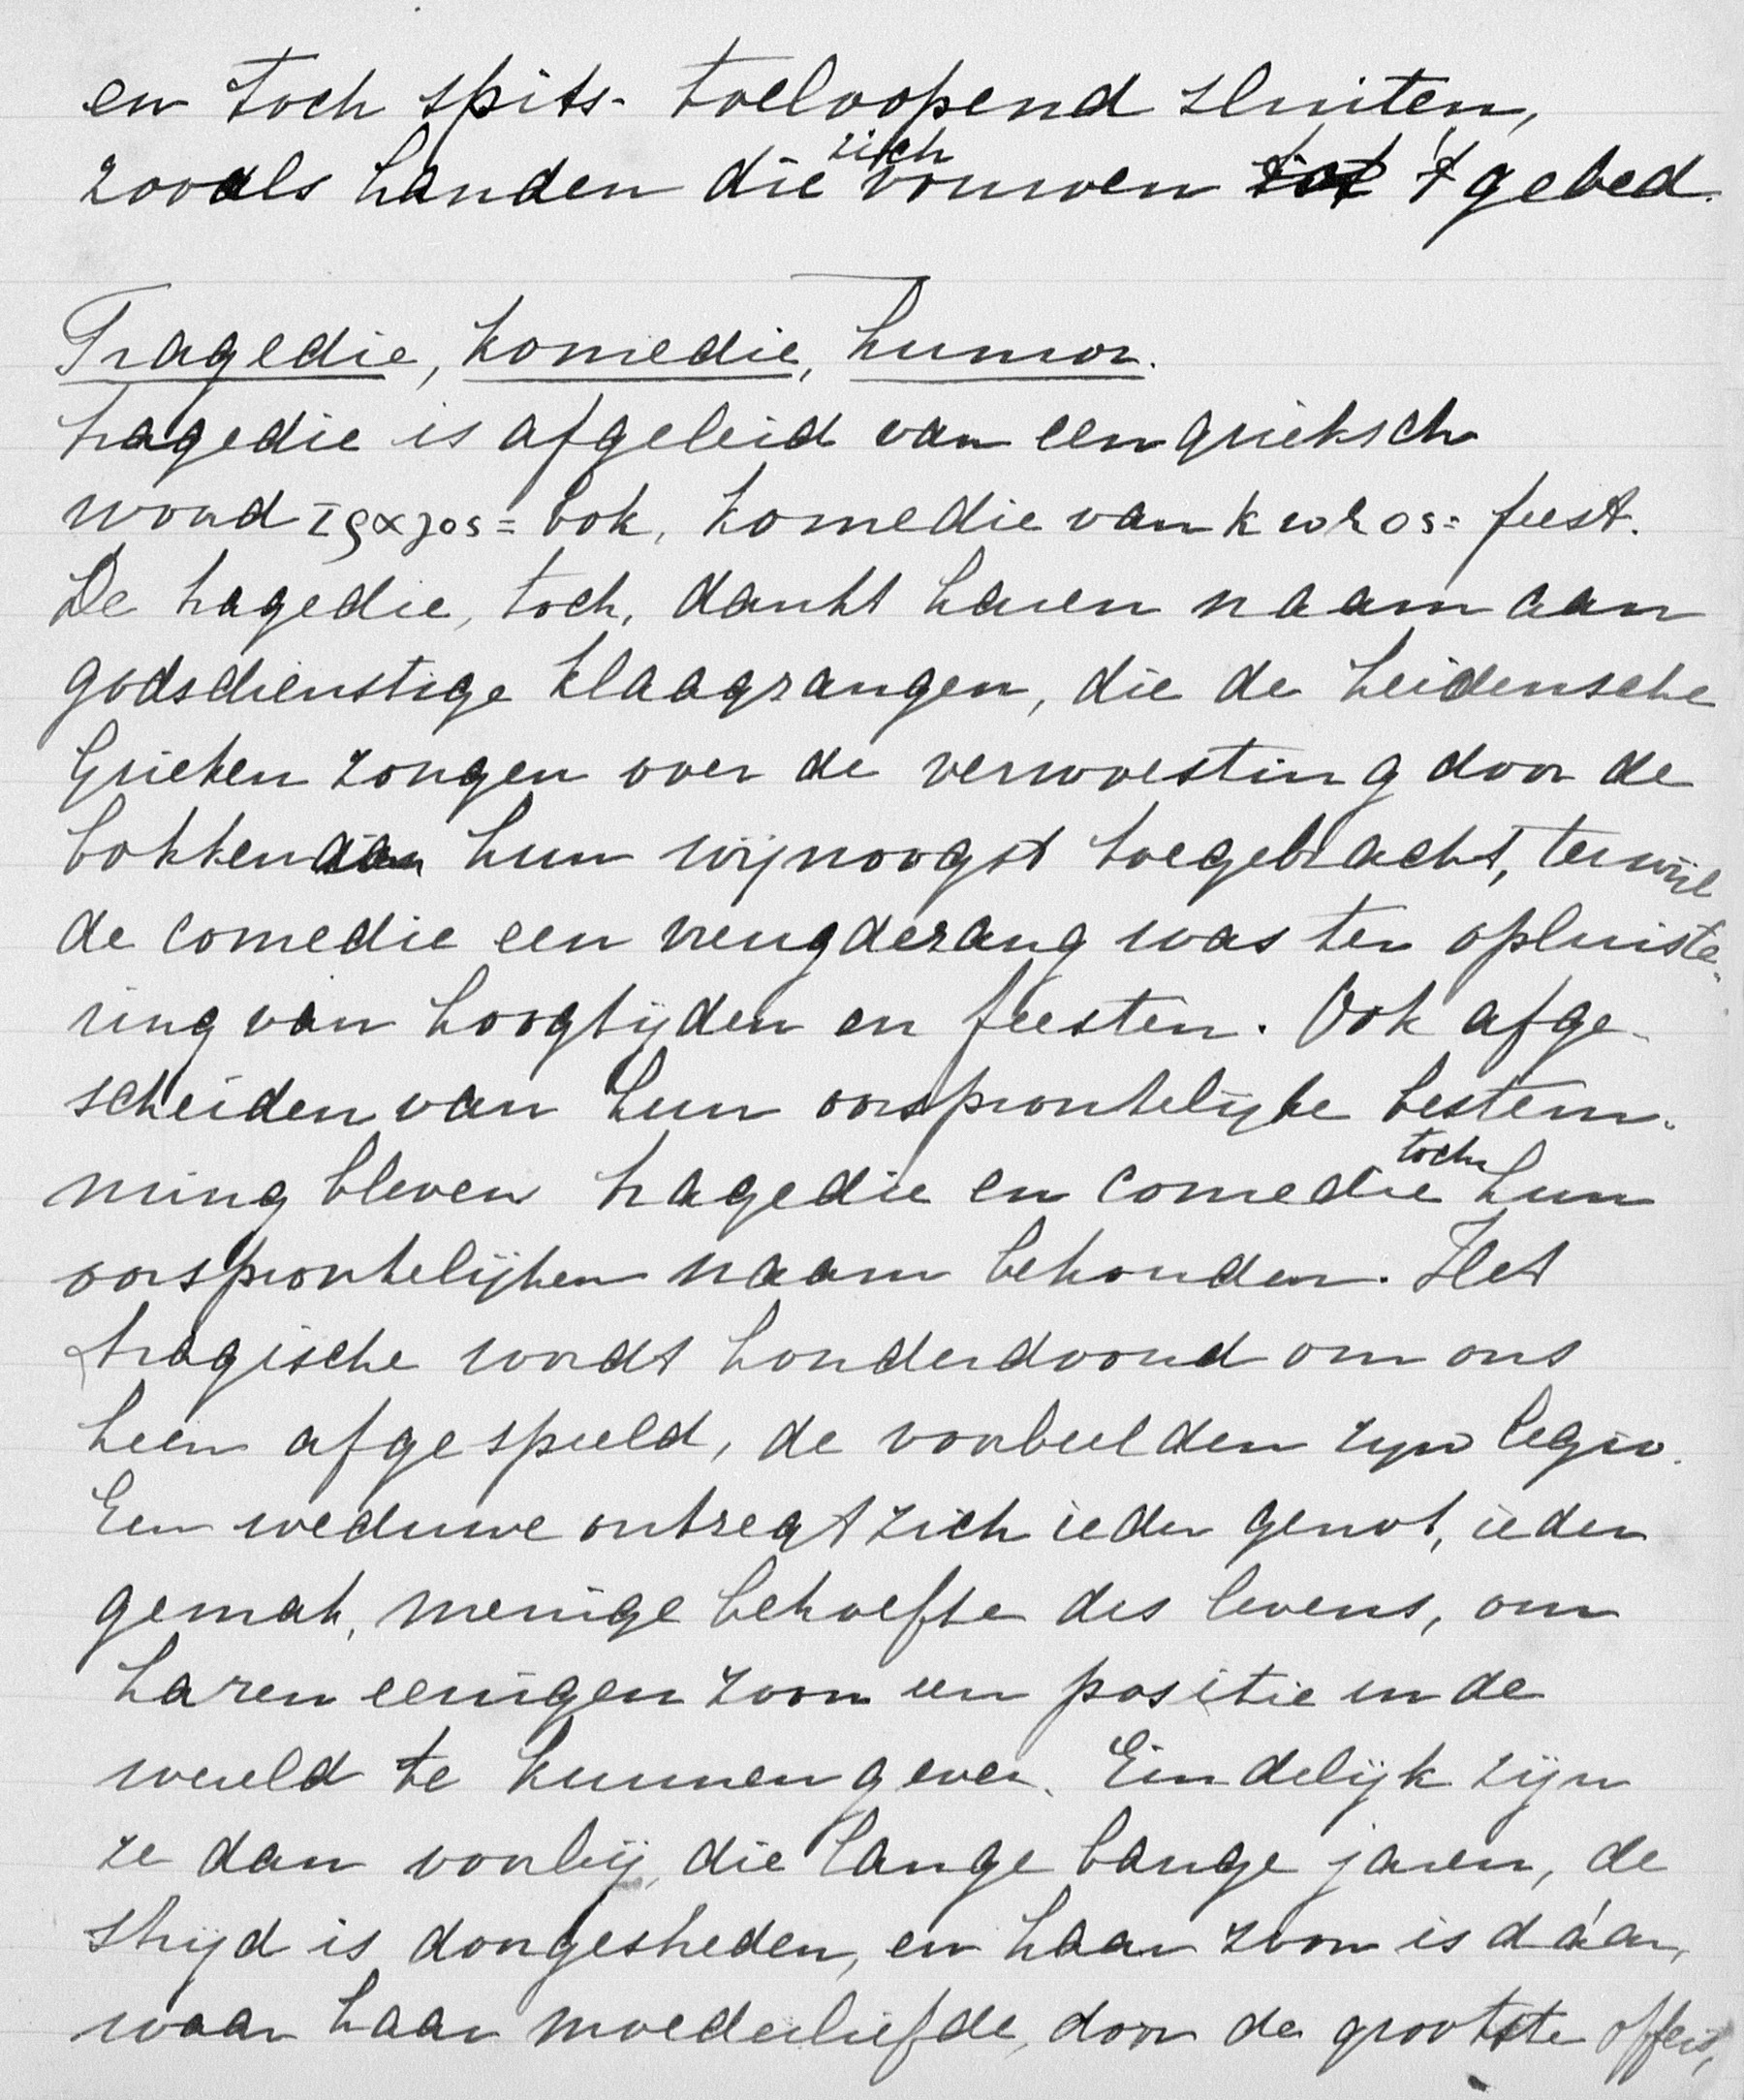 en toch spits- toeloopend sluiten,
zooals handen die zich vouwen tot 't gebed.
Tragedie, komedie, humor.
tragedie is afgeleid van een grieksch
woord τραγος = bok, komedie van κωμος = feest.
De tragedie, toch, dankt haren naam aan
godsdienstige klaagzangen, die de heidensche
Grieken zongen over de verwoesting door de
bokken aan hun wijnoogst toegebracht, terwijl
de comedie een vreugdezang was ter opluiste-
ring van hoogtijden en feesten. Ook afge-
scheiden van hun oorspronkelijke bestem-
ming bleven tragedie en comedie toch hun
oorspronkelijken naam behouden. Het
tragische wordt honderdvoud om ons
heen afgespeeld, de voorbeelden zijn legio.
Een weduwe ontzegt zich ieder genot, ieder
gemak, menige behoefte des levens, om
haren eenigen zoon een positie in de
wereld te kunnen geven. Eindelijk zijn
ze dan voorbij, die lange bange jaren, de
strijd is doorgestreden, en haar zoon is dáár,
waar haar moederliefde, door de grootste offers,